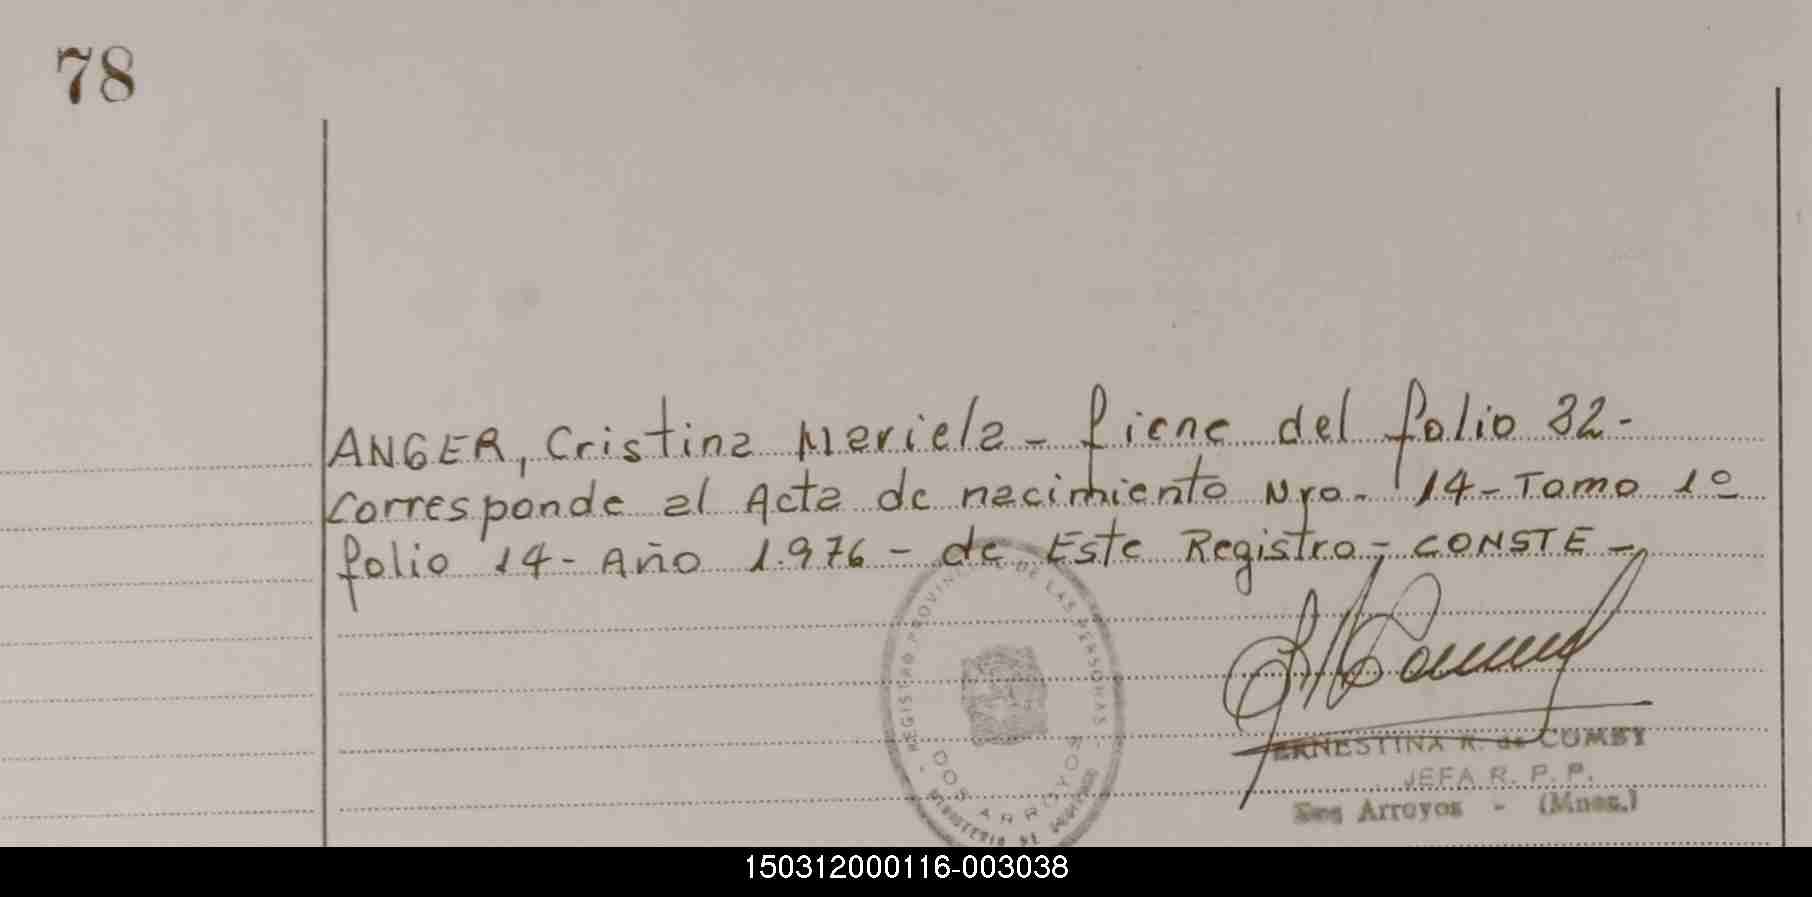 78
ANGER, Cristina Mariela - fiene del folio 32 -
Corresponde al Acta de nacimiento Nro. 14 - Tomo 1º
folio 14 - Año 1.976 - de Este Registro - CONSTE -
REGISTRO PROVINCIAL DE LAS PERSONAS
DOS ARROYOS
MINISTERIO DE
ERNESTINA R. de CUMBY
JEFA R. P. P.
Dos Arroyos - (Mnes.)
150312000116-003038